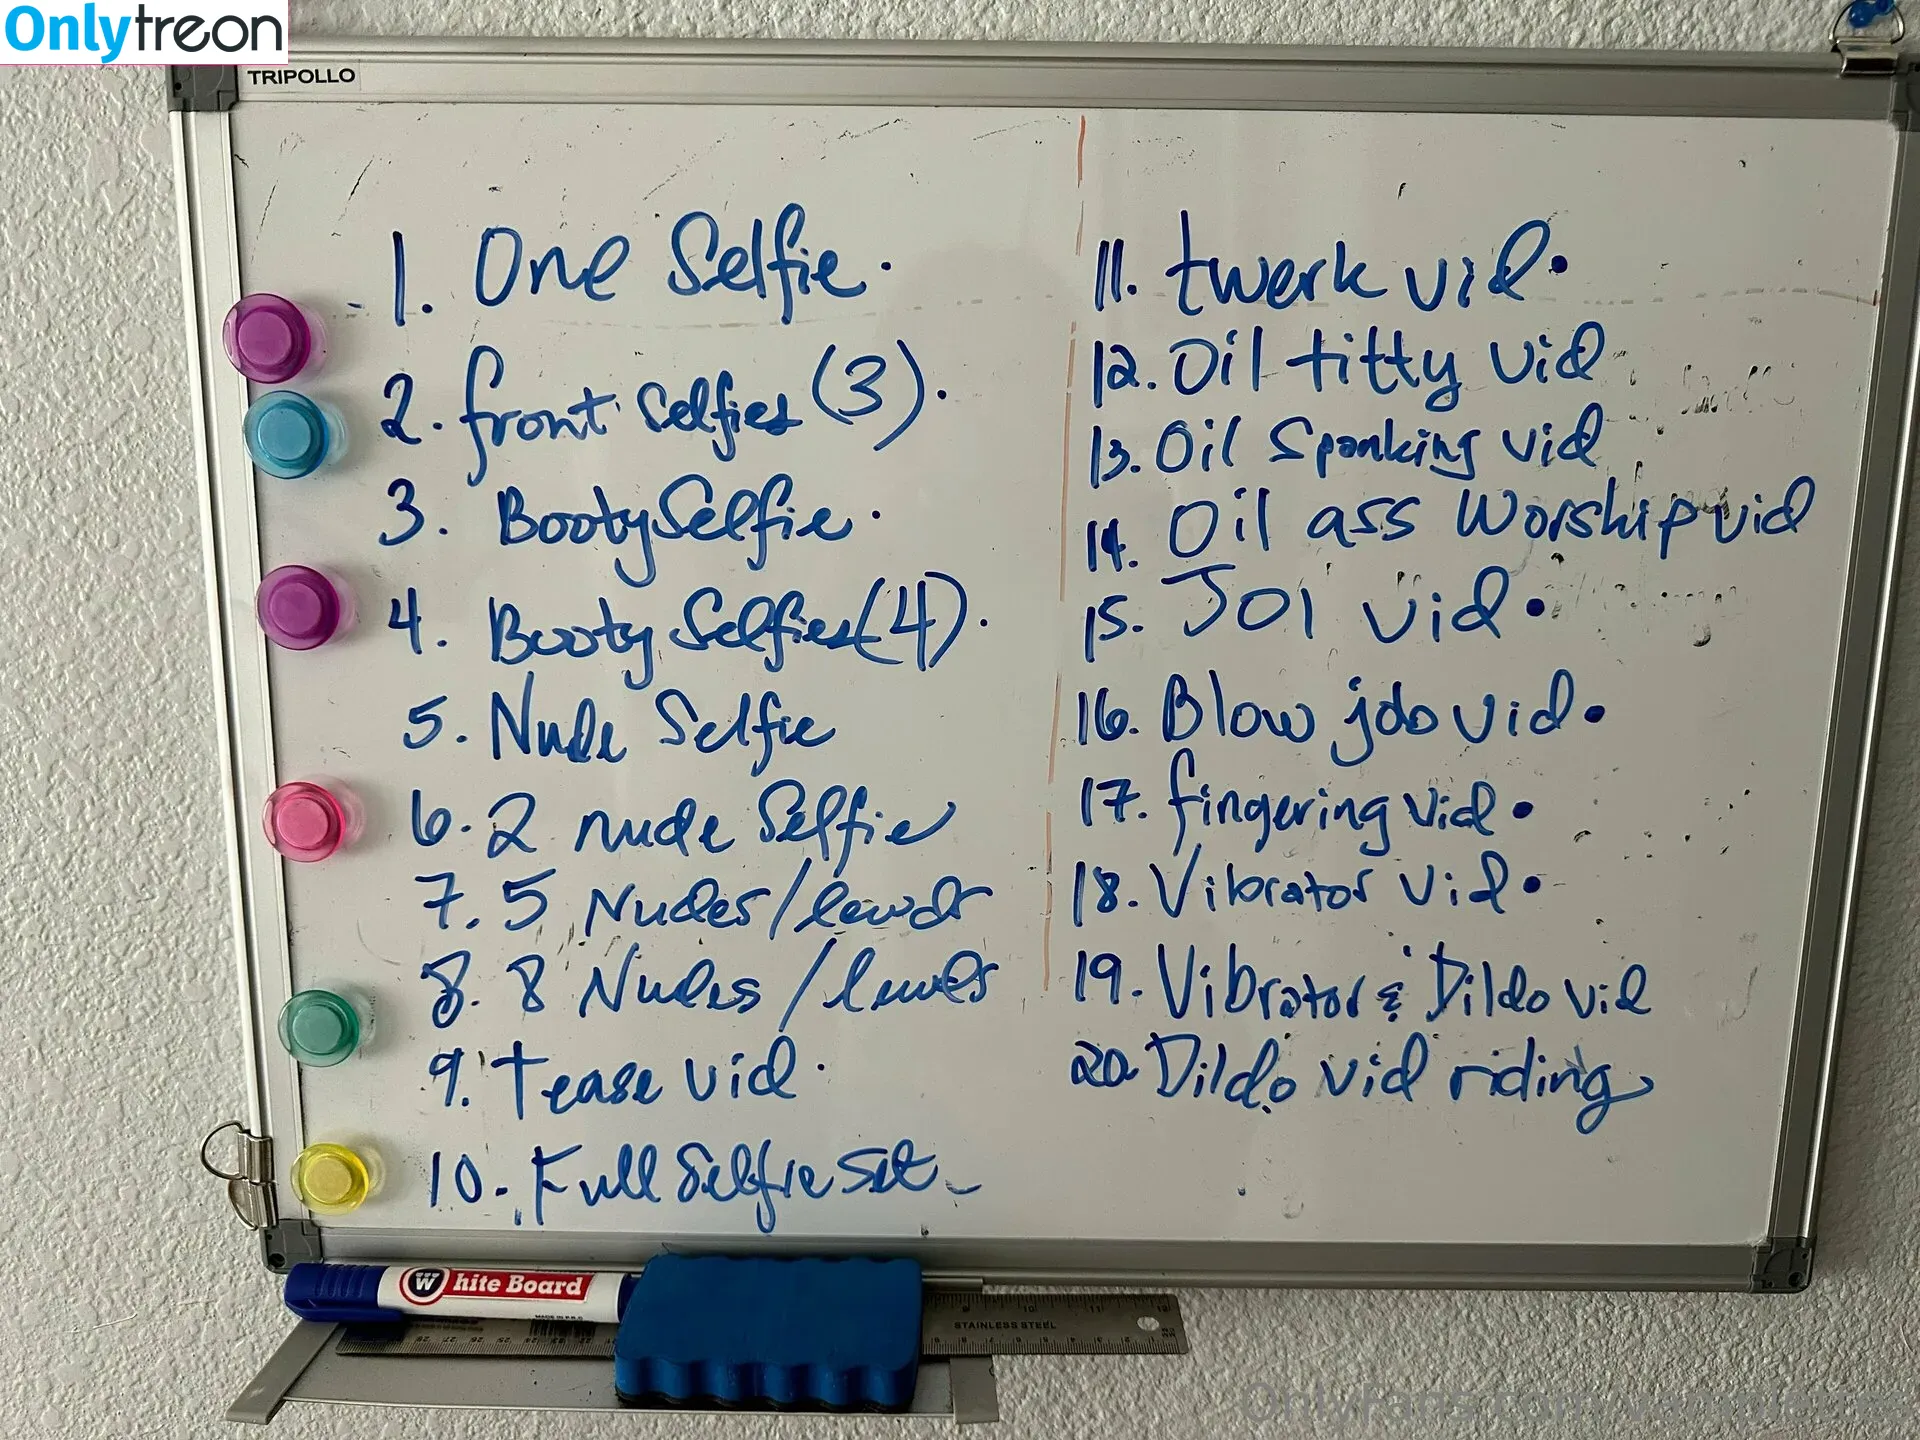 Onlytreon
TRIPOLLO
1. One Selfie.
2. front selfies (3).
3. Booty Selfie.
4. Booty Selfies (4).
5. Nude Selfie
6. 2 nude Selfie
7. 5 Nudes/lewds
8. 8 Nudes/lewds
9. Tease vid.
10. Full Selfie Set
11. twerk vid.
12. Oil titty vid
13. Oil Spanking vid
14. Oil ass worship vid
15. JOI vid.
16. Blow job vid.
17. fingering vid.
18. Vibrator vid.
19. Vibrator & Dildo vid
20. Dildo vid riding
White Board
MADE IN P.R.C
STAINLESS STEEL